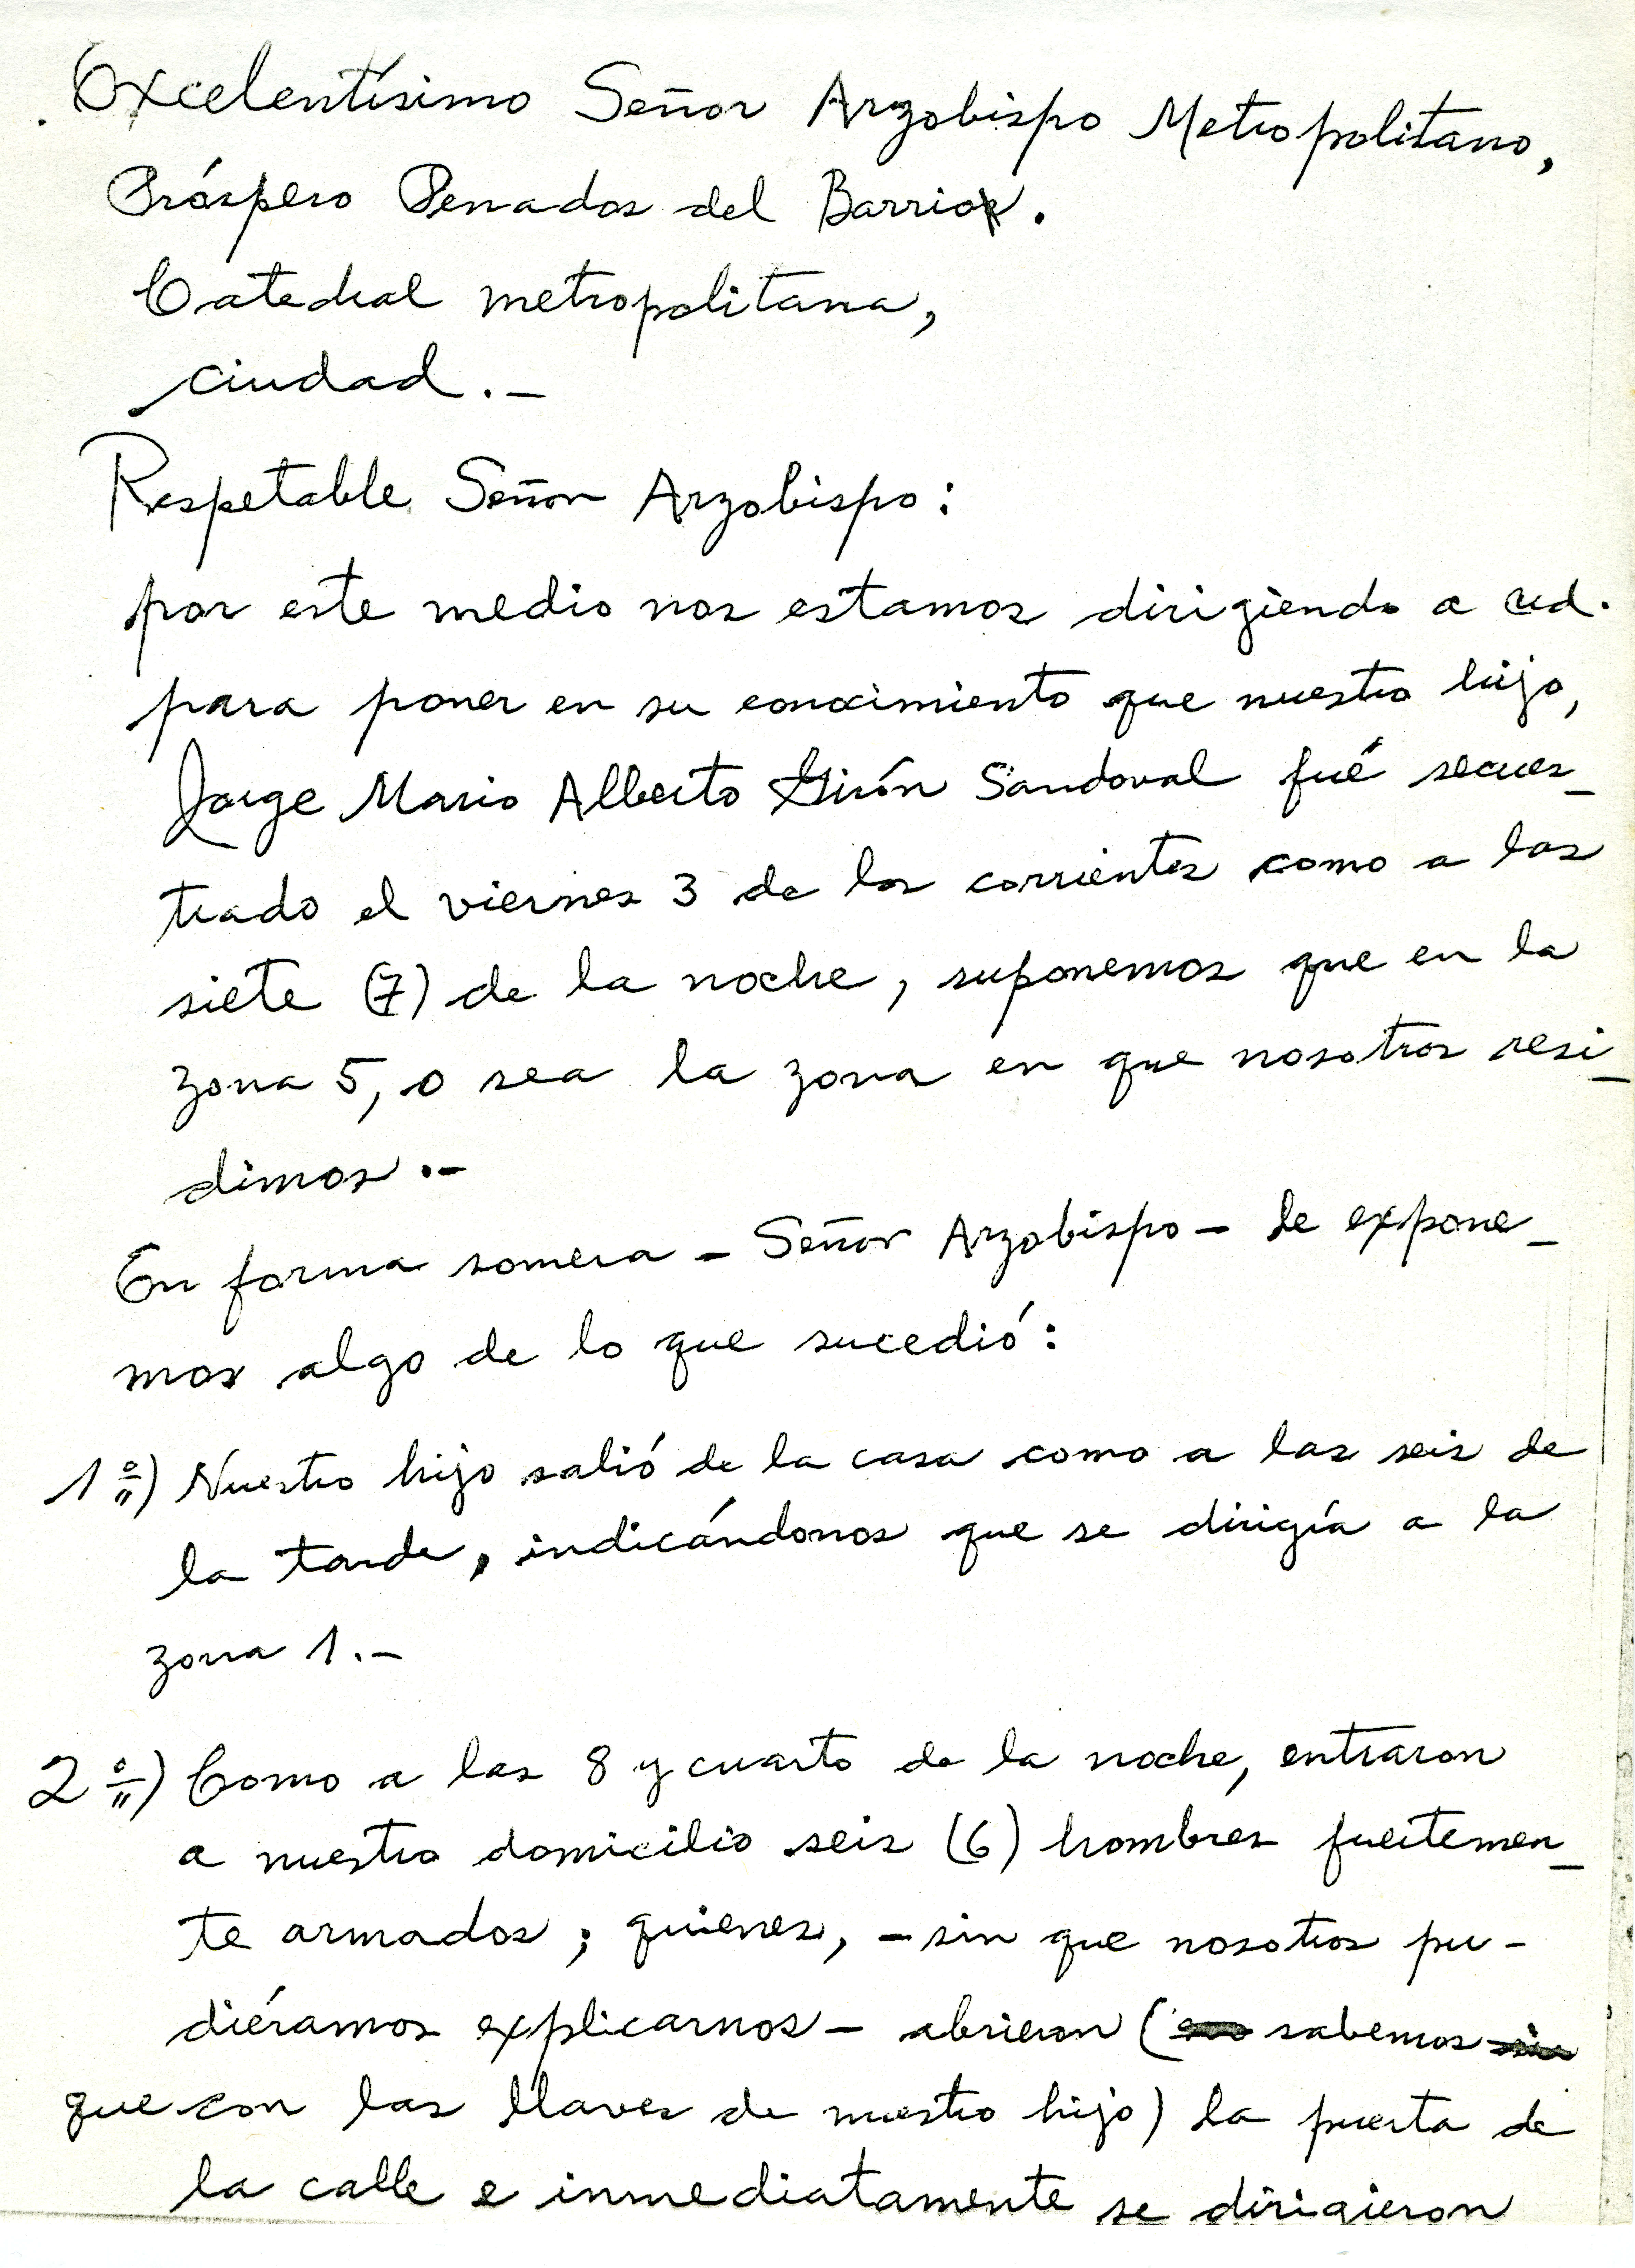 Excelentísimo Señor Arzobispo Metropolitano,
Próspero Penados del Barrio.
Catedral metropolitana,
ciudad.-
Respetable Señor Arzobispo:
por este medio nos estamos dirigiendo a ud.
para poner en su conocimiento que nuestro hijo,
Jorge Mario Alberto Girón Sandoval fué secues-
trado el viernes 3 de los corrientes como a las
siete (7) de la noche, suponemos que en la
zona 5, o sea la zona en que nosotros resi-
dimos.-
En forma somera - Señor Arzobispo - le expone-
mos algo de lo que sucedió:
1º) Nuestro hijo salió de la casa como a las seis de
la tarde, indicándonos que se dirigía a la
zona 1.-
2º) Como a las 8 y cuarto de la noche, entraron
a nuestro domicilio seis (6) hombres fuertemen-
te armados; quienes, - sin que nosotros pu-
diéramos explicarnos - abrieron ( sabemos
que con las llaves de nuestro hijo) la puerta de
la calle e inmediatamente se dirigieron